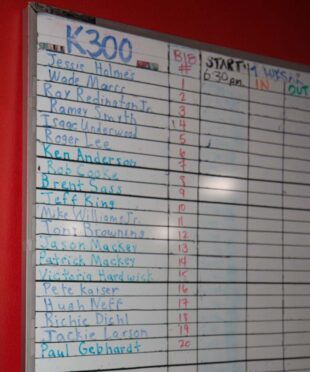 K300 BIB # START 6:30 am. IN OUT
Jessie Holmes
Wade Marrs 2
Ray Redington Jr. 3
Ramey Smyth 4
Isaac Underwood 5
Roger Lee 6
Ken Anderson 7
Rob Cooke 8
Brent Sass 9
Jeff King 10
Mike Williams Jr. 11
Toni Browning 12
Jason Mackey 13
Patrick Mackey 14
Victoria Hardwick 15
Pete Kaiser 16
Hugh Neff 17
Richie Diehl 18
Jackie Larson 19
Paul Gebhardt 20